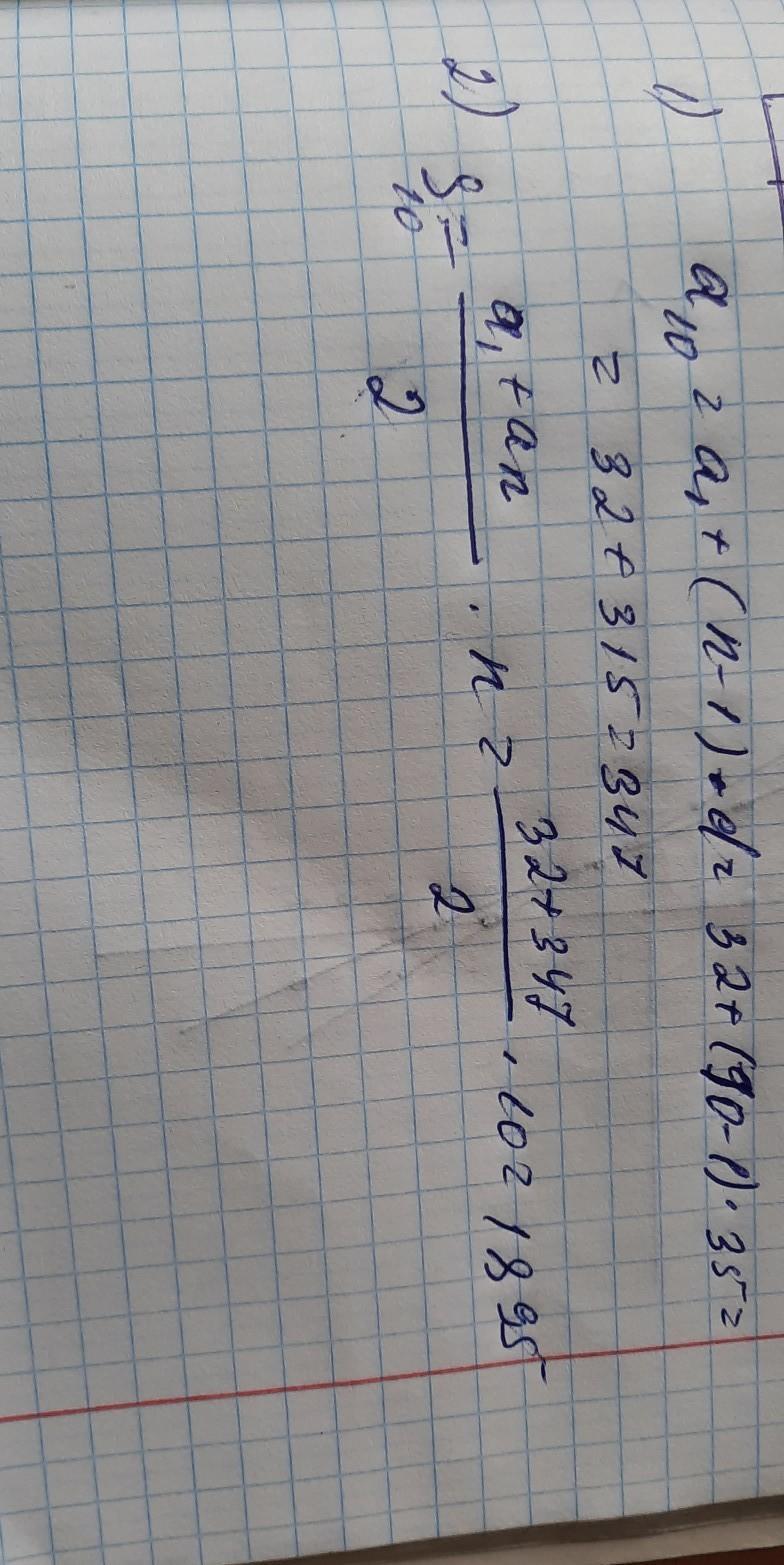 1) a₁₀ = a₁ + (n-1)·d = 32 + (10-1)·35 =
= 32 + 315 = 347
2) S₁₀ = (a₁ + an)/2 · n = (32 + 347)/2 · 10 = 1895